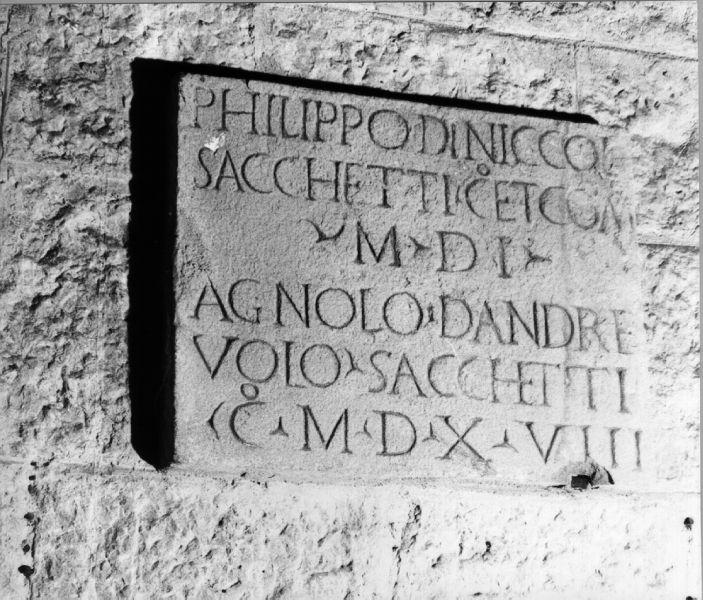 PHILIPPO DI NICCOL
SACCHETTI C̊ ET COM
M · D I ·
AGNOLO · DANDRE
VOLO · SACCHETTI
C̊ · M · D · X · VIII